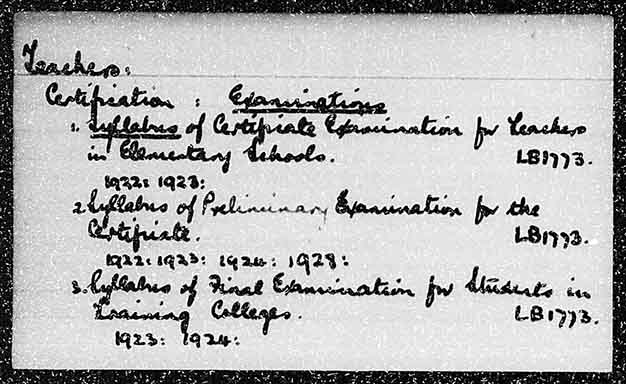 Teachers:
Certification : Examinations
1. Syllabus of Certificate Examination for Teachers
in Elementary Schools. LB1773.
1922: 1923:
2. Syllabus of Preliminary Examination for the
Certificate. LB1773.
1922: 1923: 1924: 1928:
3. Syllabus of Final Examination for Students in
Training Colleges. LB1773.
1923: 1924: